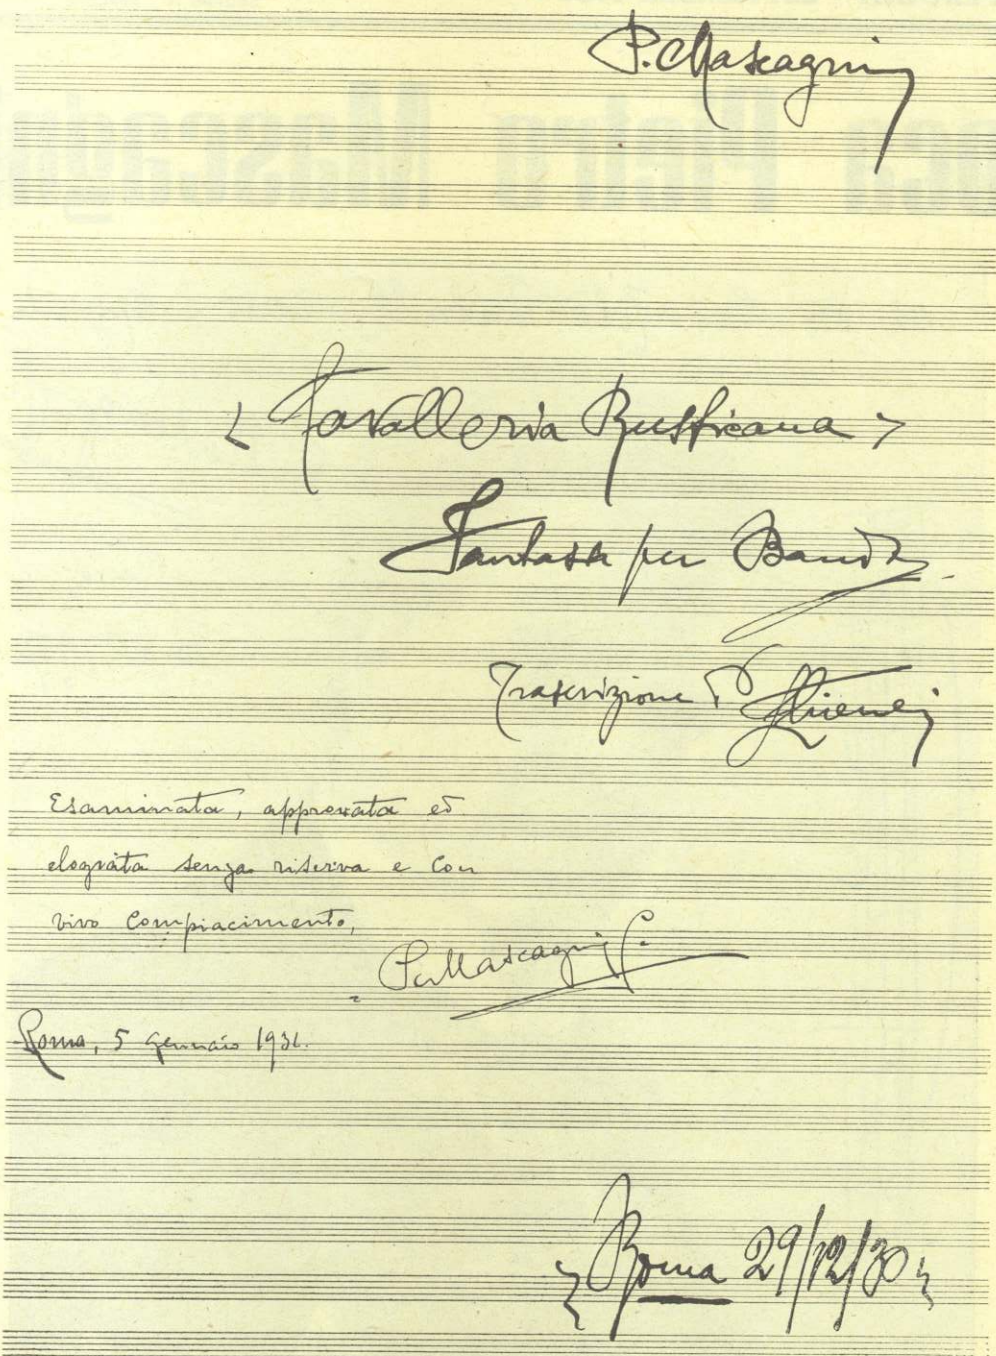 P. Mascagni
< Cavalleria Rusticana >
Fantasia per Banda
Trascrizione
Esaminata, approvata ed
elogiata senza riserva e con
vivo compiacimento,
P. Mascagni
Roma, 5 gennaio 1931.
Roma 29/12/30